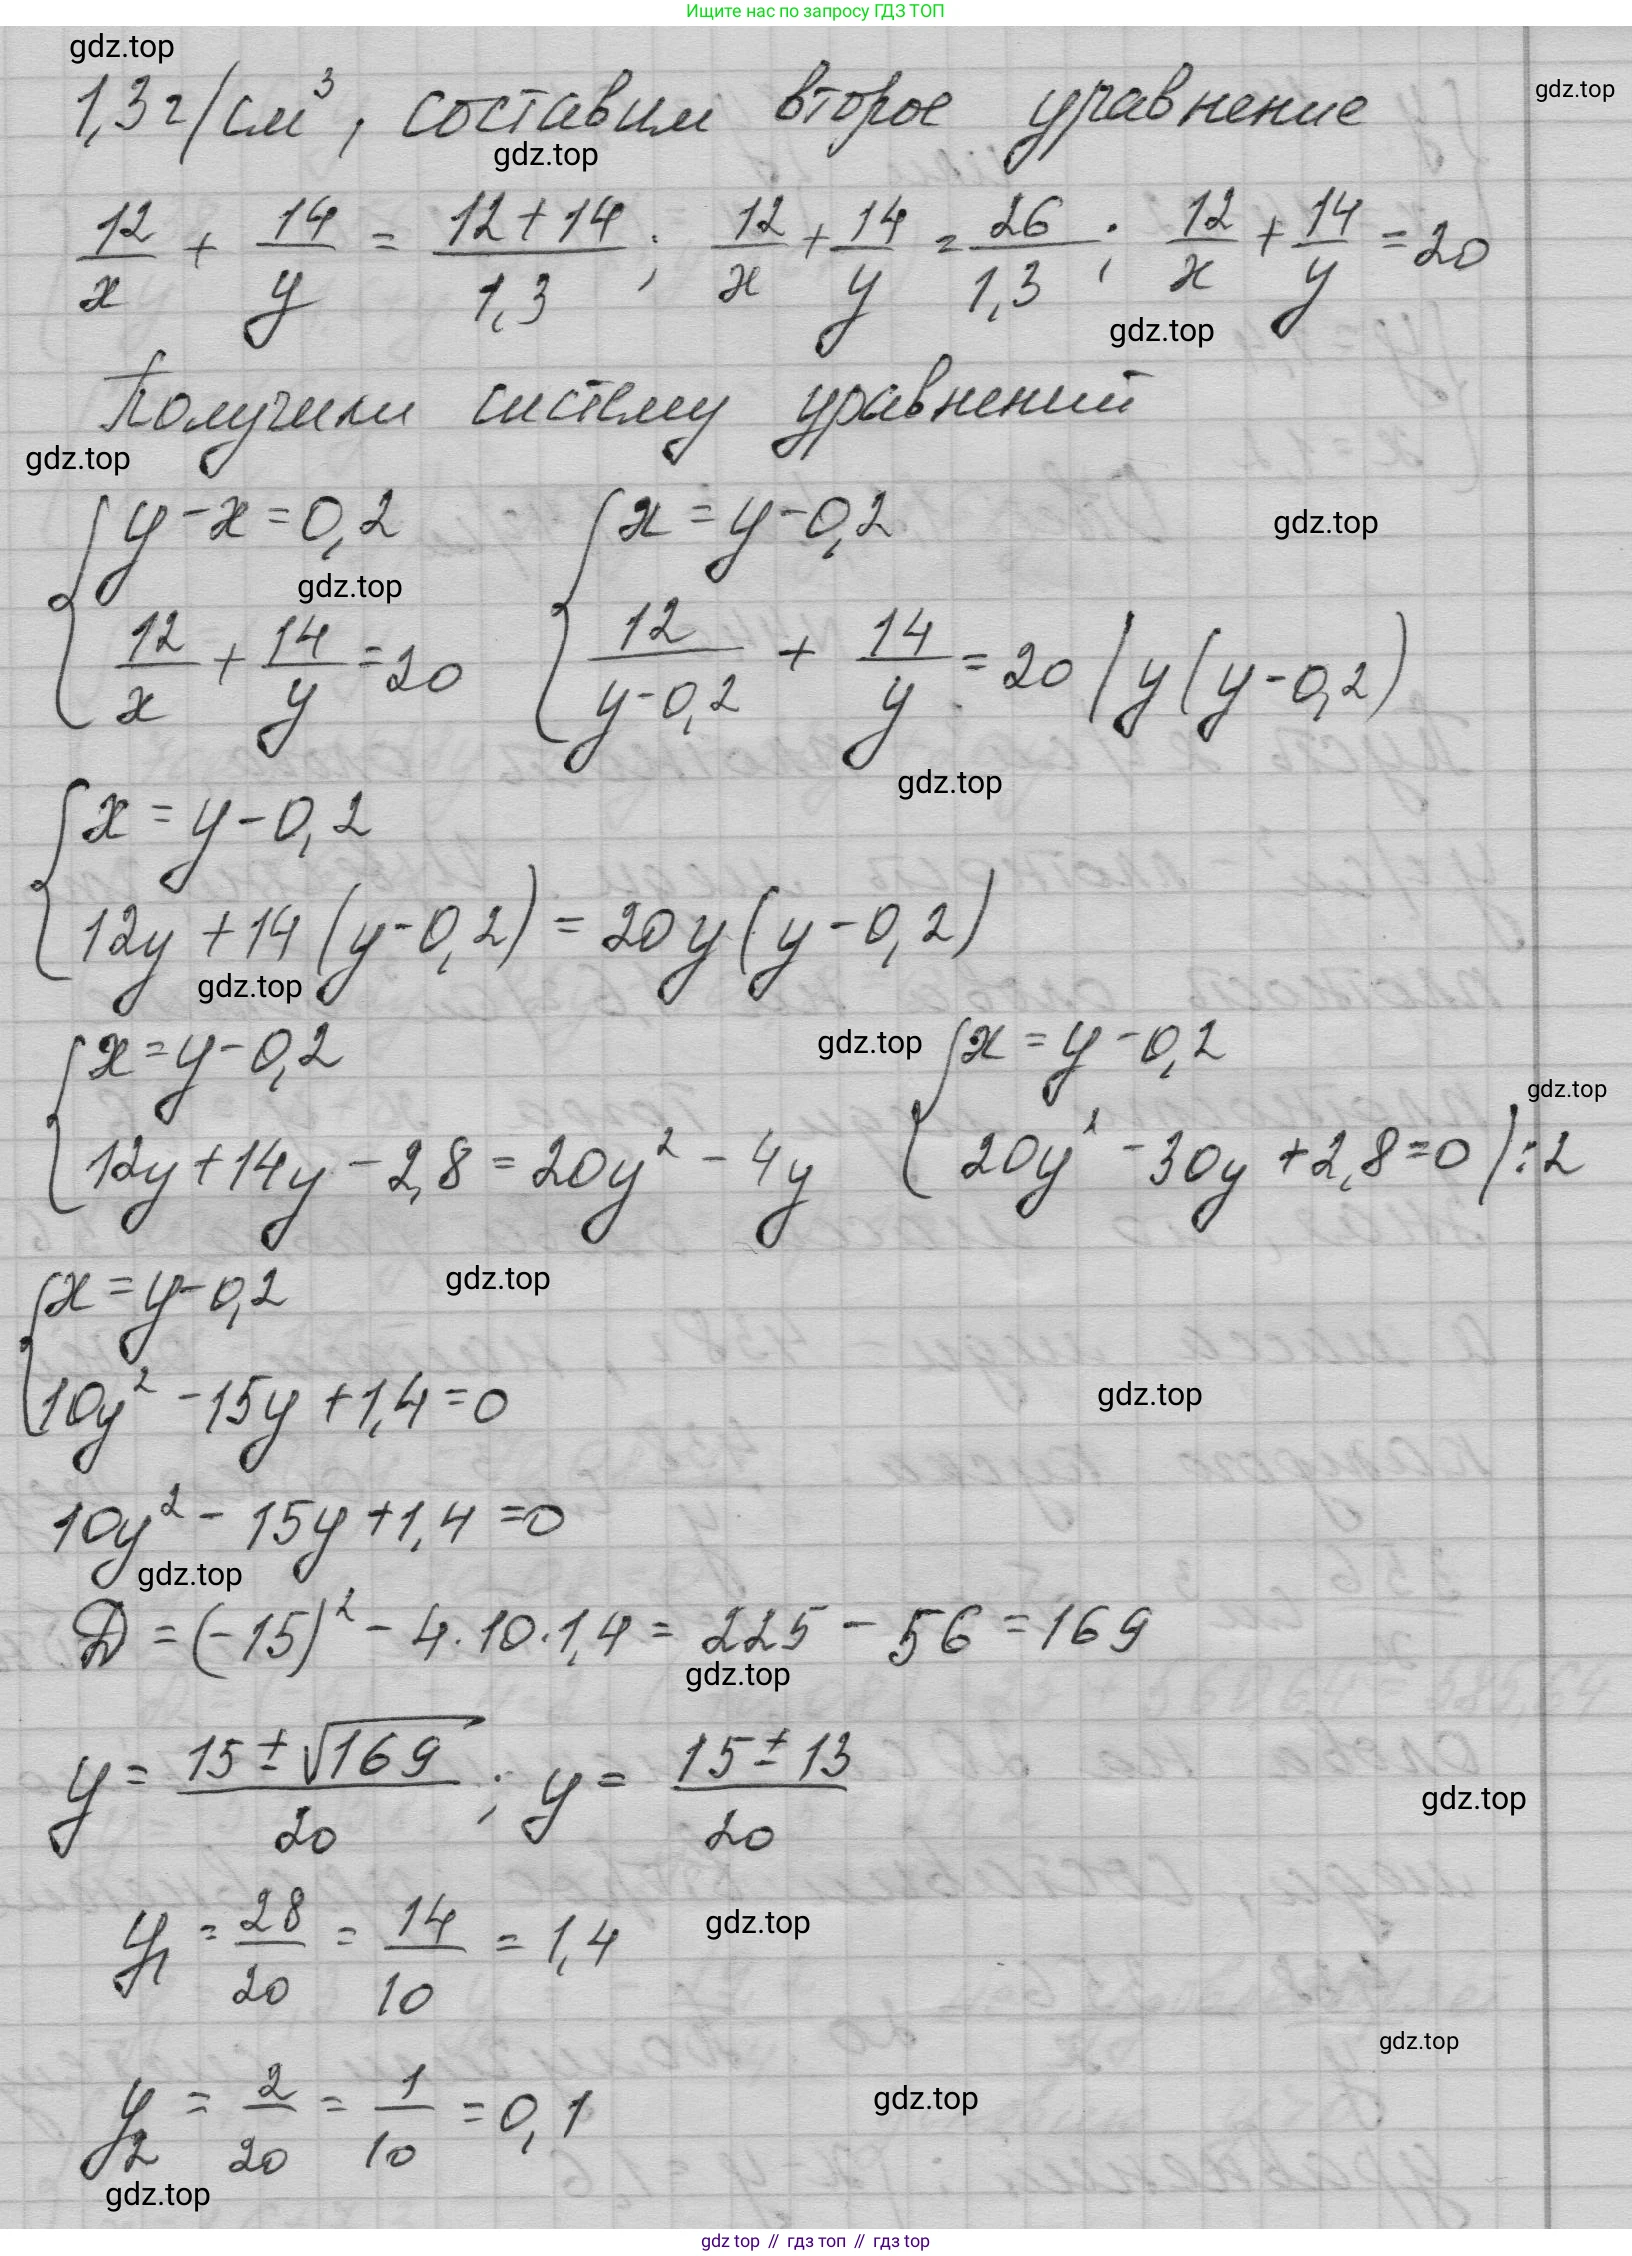 Ищите нас по запросу ГДЗ ТОП
gdz.top
1,3 г/см³, составим второе уравнение
gdz.top
gdz.top
12/x + 14/y = (12+14)/1,3 ; 12/x + 14/y = 26/1,3 ; 12/x + 14/y = 20
gdz.top
Получили систему уравнений
gdz.top
{ y-x=0,2 { x=y-0,2
gdz.top
gdz.top
12/x + 14/y = 20 12/(y-0,2) + 14/y = 20 | y(y-0,2)
gdz.top
{ x=y-0,2
12y+14(y-0,2)=20y(y-0,2)
gdz.top
{ x=y-0,2 { x=y-0,2
gdz.top
gdz.top
12y+14y-2,8=20y²-4y 20y²-30y+2,8=0 ):2
{ x=y-0,2
gdz.top
10y²-15y+1,4=0
gdz.top
10y²-15y+1,4=0
gdz.top
D=(-15)²-4·10·1,4=225-56=169
gdz.top
y=(15±√169)/20 ; y=(15±13)/20
gdz.top
y₁=28/20=14/10=1,4
gdz.top
gdz.top
y₂=2/20=1/10=0,1
gdz.top
gdz.top
gdz top // гдз топ // gdz top